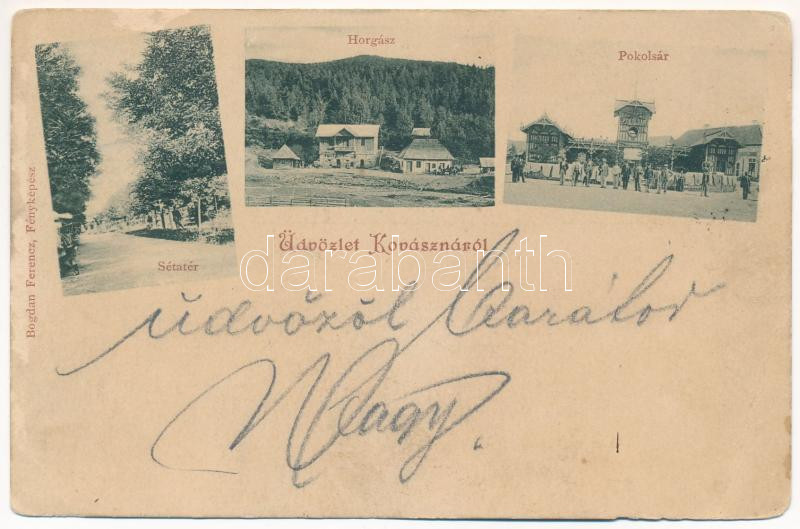 Horgász
Pokolsár
Sétatér
Bogdan Ferencz, Fényképész
Üdvözlet Kovásznáról
darabanth
üdvözöl barátod
Nagy.